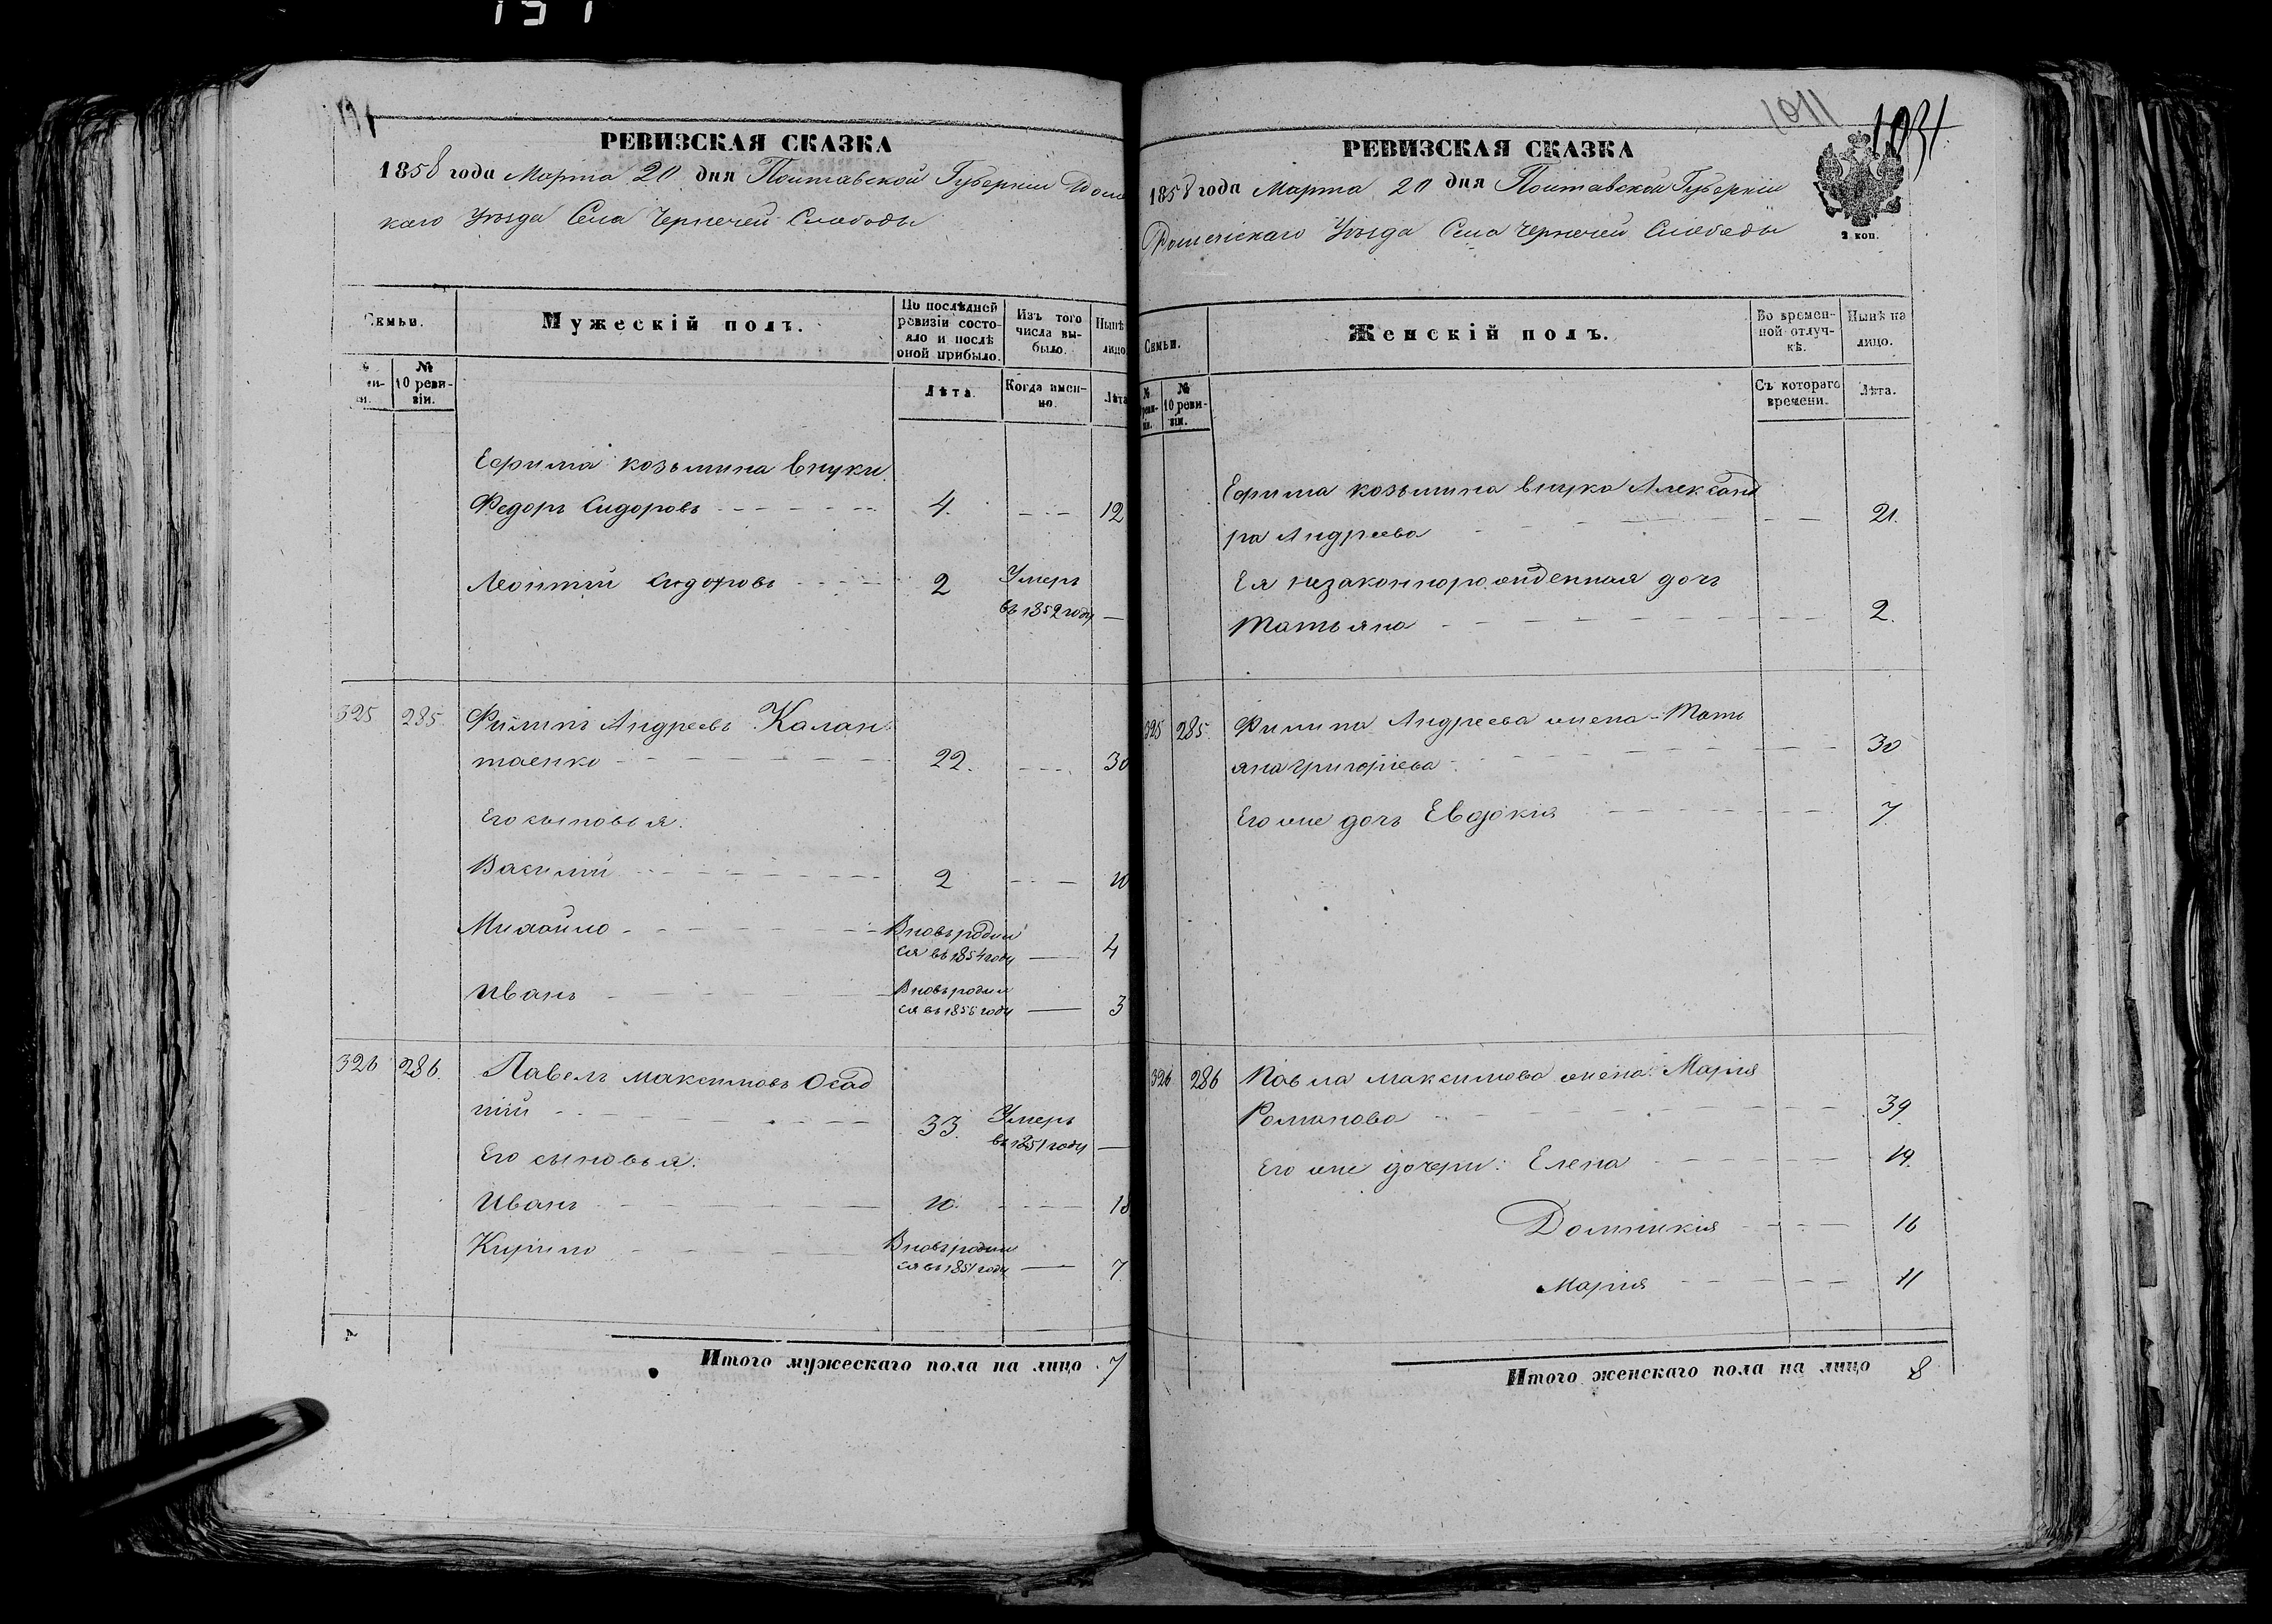 РЕВИЗСКАЯ СКАЗКА
1858 года Марта 20 дня Полтавской Губерніи Ромен
скаго Уѣзда Села Чернечей Слободы
Семьи.
Мужескій полъ.
По послѣдней ревизіи состояло и послѣ оной прибыло.
Изъ того числа выбыло.
Нынѣ
лицо
№
10 ревизіи.
Лѣта.
Когда именно.
Лѣта
Ефима Козьмина внуки
Федоръ Сидоровъ 4. 12
Леонтій Сидоровъ 2 Умеръ
въ 1852 году
325 285. Филипъ Андреевъ Калан
таенко 22. 30
Его сыновья:
Василій 2 10
Михайло Вновь родил
ся въ 1854 году 4
Иванъ Вновь родил
ся въ 1855 году 3
326 286. Павелъ Максимовъ Осад
чій 33. Умеръ
въ 1851 году
Его сыновья:
Иванъ 10. 18
Кирило Вновь родил
ся въ 1851 году 7
Итого мужескаго пола на лицо 7
1011
1031
РЕВИЗСКАЯ СКАЗКА
1858 года Марта 20 дня Полтавской Губерніи
Роменскаго Уѣзда Села Чернечей Слободы
2 коп.
Семьи.
Женскій полъ.
Во временной отлучкѣ.
Нынѣ на лицо.
№
№
10 ревизіи.
Съ котораго времени.
Лѣта.
Ефима Козьмина внука Александ
ра Андреева 21.
Ея незаконнорожденная дочь
Татьяна 2.
325 285. Филипа Андреева жена Тать
яна Григорьева 30
Его же дочь Евдокія 7.
326 286 Павла Максимова жена Марія
Романова 39.
Его же дочери: Елена 19.
Домникія 16
Марія 11
Итого женскаго пола на лицо 8